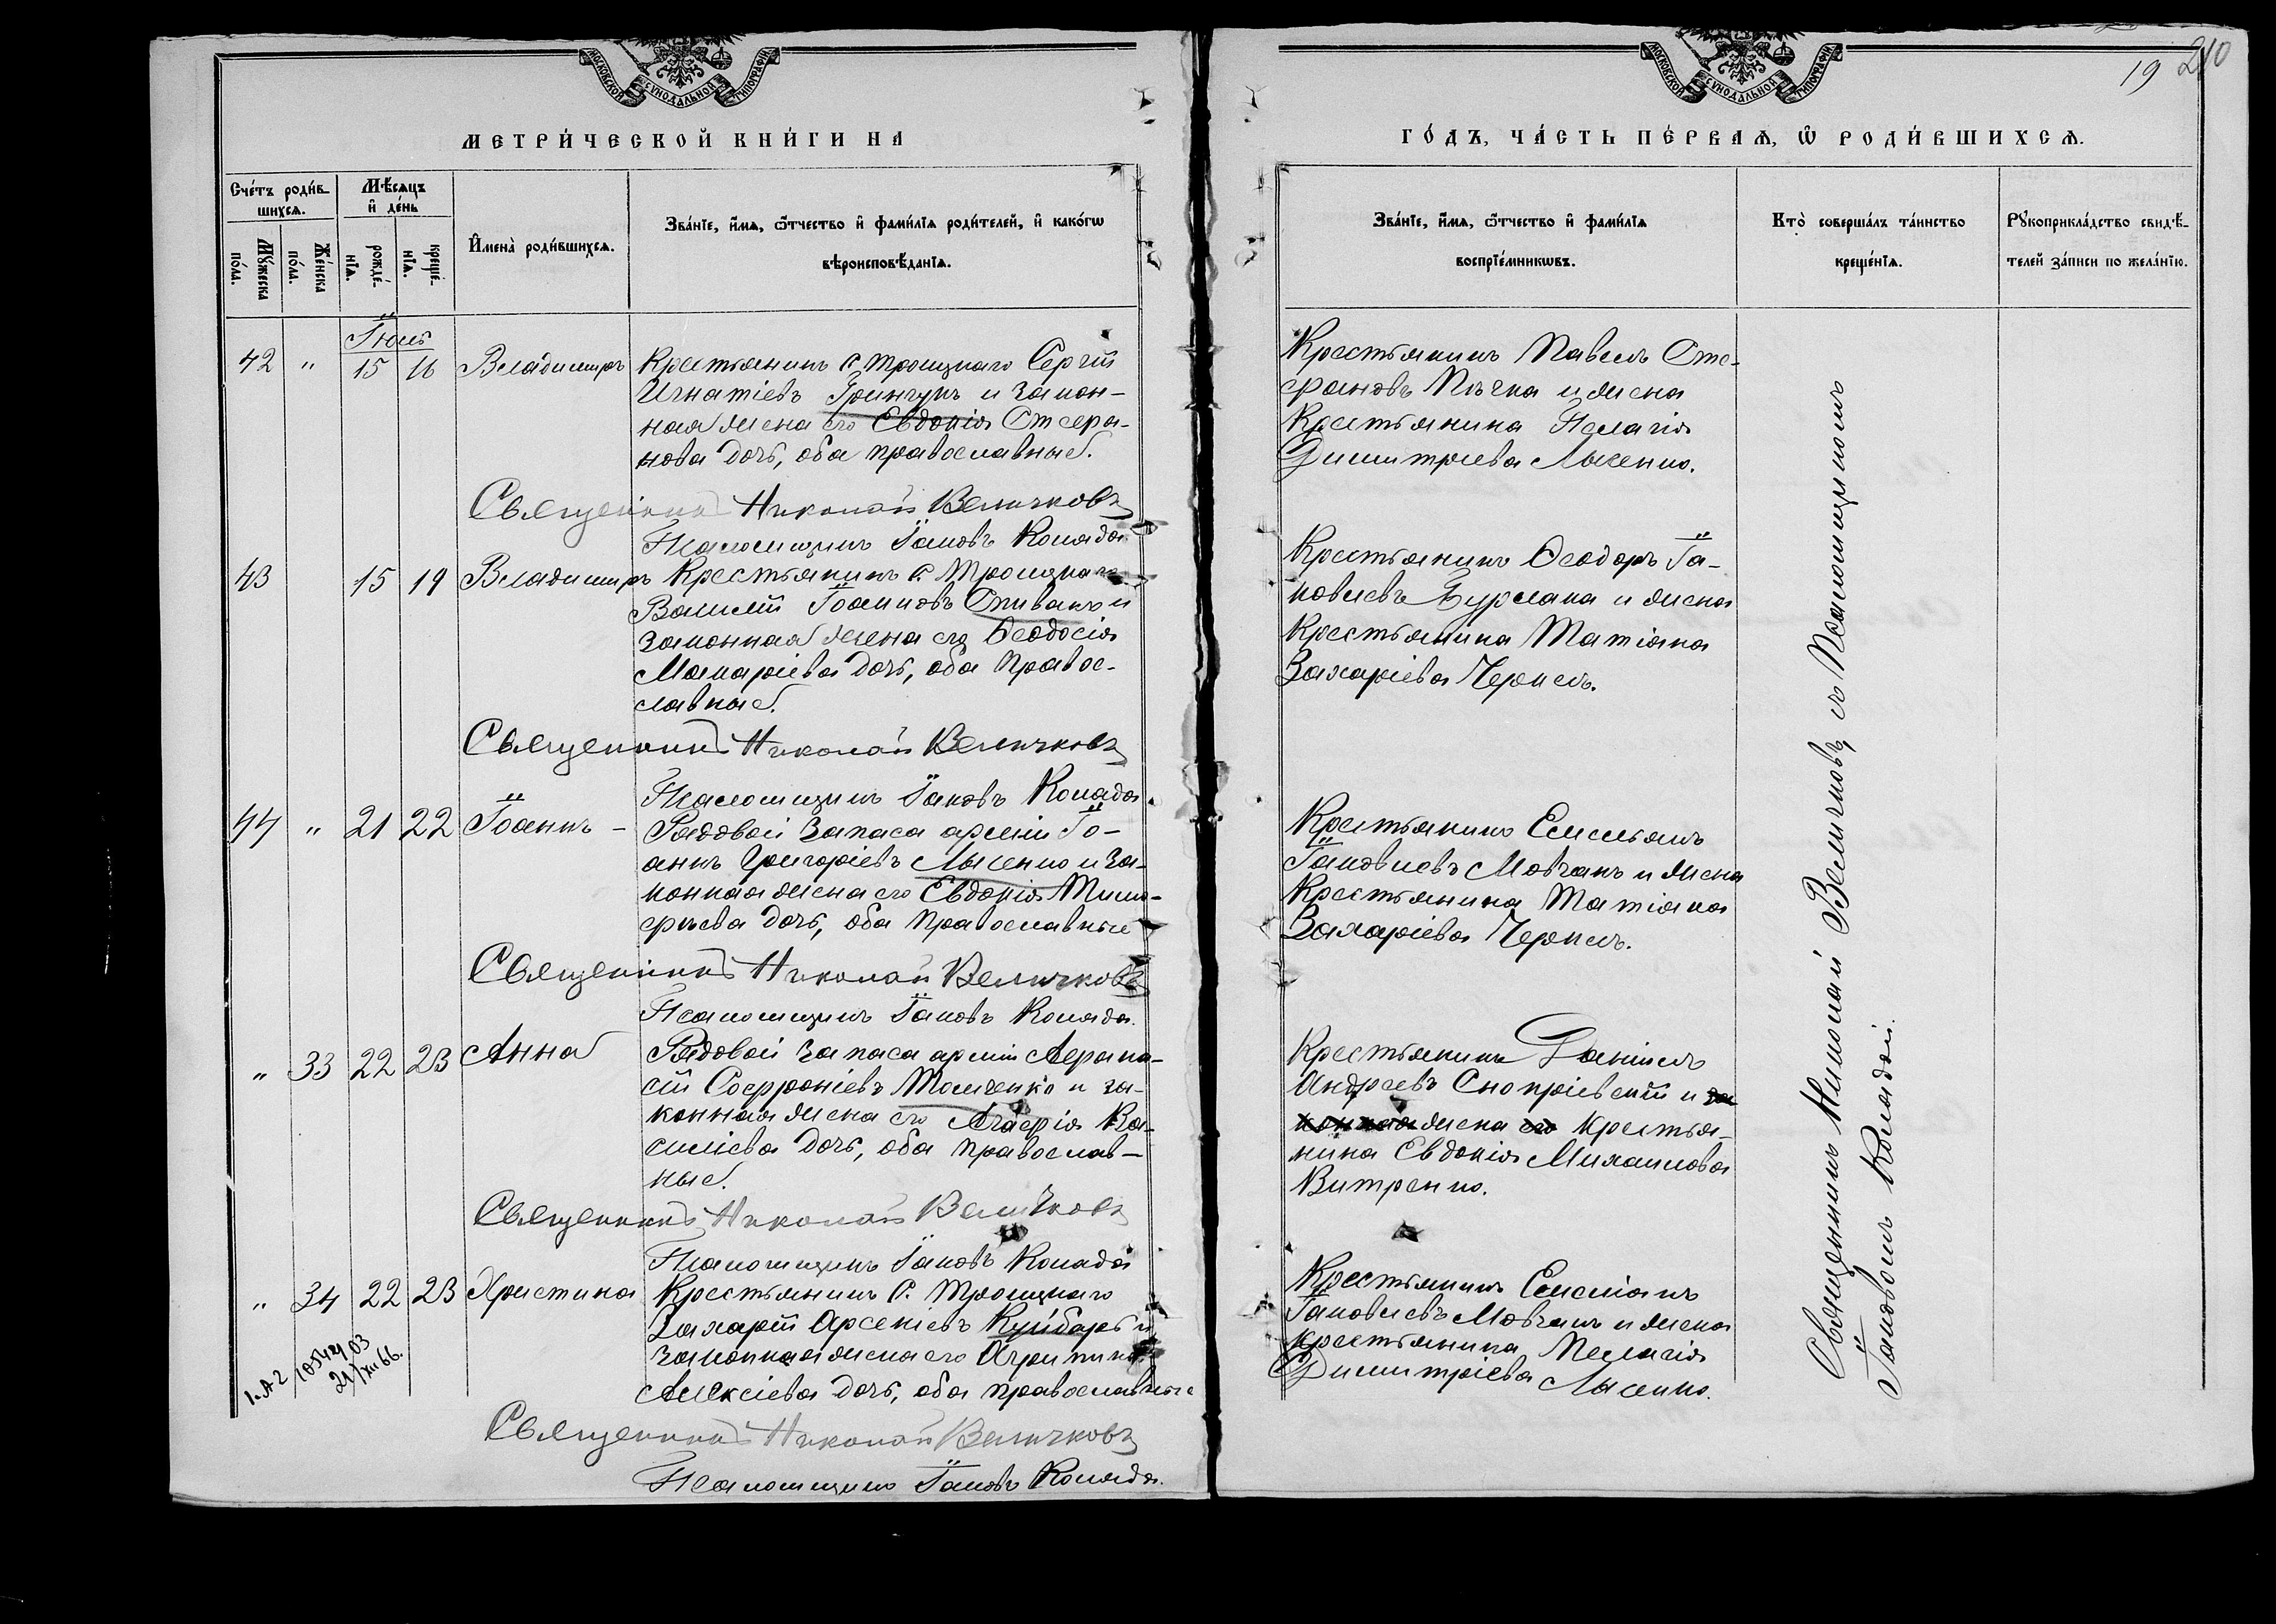 МОСКОВСКОЙ СѴНОДАЛЬНОЙ ТИПОГРАФІИ
МЕТРИ́ЧЕСКОЙ КНИ́ГИ НА
Сче́тъ роди́в-
шихсѧ.
Мѣ́сѧцъ
и҆ де́нь
Мꙋ́жеска
по́ла.
Же́нска
по́ла.
рожде́-
нїѧ.
креще́-
нїѧ.
И҆мена̀ роди́вшихсѧ.
Зва́нїе, и҆́мѧ, ѻ҆́тчество и҆ фами́лїѧ роди́телей, и҆ како́гѡ
вѣроисповѣ́данїѧ.
Іюль
42 " 15 16 Владиміръ Крестьянинъ с. Троицкаго Сергій
Игнатіевъ Гринчукъ и закон-
ная жена его Евдокія Стефа-
нова дочь, оба православные.
Священникъ Николай Величковъ
Псаломщикъ Іаковъ Коляда
43 15 19 Владиміръ Крестьянинъ с. Троицкаго
Василій Іоанновъ Спивакъ и
законная жена его Ѳеодосія
Макаріева дочь, оба правос-
лавные.
Священникъ Николай Величковъ
Псаломщикъ Іаковъ Коляда.
44 " 21 22 Іоаннъ - Рядовой запаса арміи Іо-
аннъ Григоріевъ Лысенко и за-
конная жена его Евдокія Тимо-
фѣева дочь, оба православные
Священникъ Николай Величковъ
Псаломщикъ Іаковъ Коляда.
" 33 22 23 Анна Рядовой запаса арміи Аѳана-
сій Софроніевъ Томченко и за-
конная жена его Агафія Ва-
силіева дочь, оба православ-
ные.
Священникъ Николай Величковъ
Псаломщикъ Іаковъ Коляда
" 34 22 23 Христина Крестьянинъ с. Троицкаго
Захарій Арсеніевъ Куйбарь и
законная жена его Агрипина
Алексіева дочь, оба православные
Священникъ Николай Величковъ
Псаломщикъ Іаковъ Коляда.
19 210
МОСКОВСКОЙ СѴНОДАЛЬНОЙ ТИПОГРАФІИ
ГО́ДЪ, ЧА́СТЬ ПЕ́РВАѦ, Ѡ҆ РОДИ́ВШИХСѦ.
Зва́нїе, и҆́мѧ, ѻ҆́тчество и҆ фами́лїѧ
воспрїе́мникѡвъ.
Кто̀ соверша́лъ та́инство
креще́нїѧ.
Рꙋкоприкла́дство свидѣ́-
телей за́писи по жела́нїю.
Крестьянинъ Павелъ Сте-
фановъ Пѣчка и жена
Крестьянина Пелагія
Димитріева Лысенко.
Крестьянинъ Ѳеодоръ Іа-
ковлевъ Бурлака и жена
Крестьянина Татіана
Захаріева Черпель.
Крестьянинъ Емельянъ
Іаковлевъ Мовчанъ и жена
Крестьянина Татіана
Захаріева Черпель.
Крестьянинъ Даніилъ
Андреевъ и за
конная жена его крестья-
нина Евдокія Михаилова
Витренко.
Крестьянинъ Емеліанъ
Іаковлевъ Мовчанъ и жена
крестьянина Пелагія
Димитріева Лысенко.
Священникъ Николай Величковъ съ Псаломщикомъ
Іаковомъ Колядой.